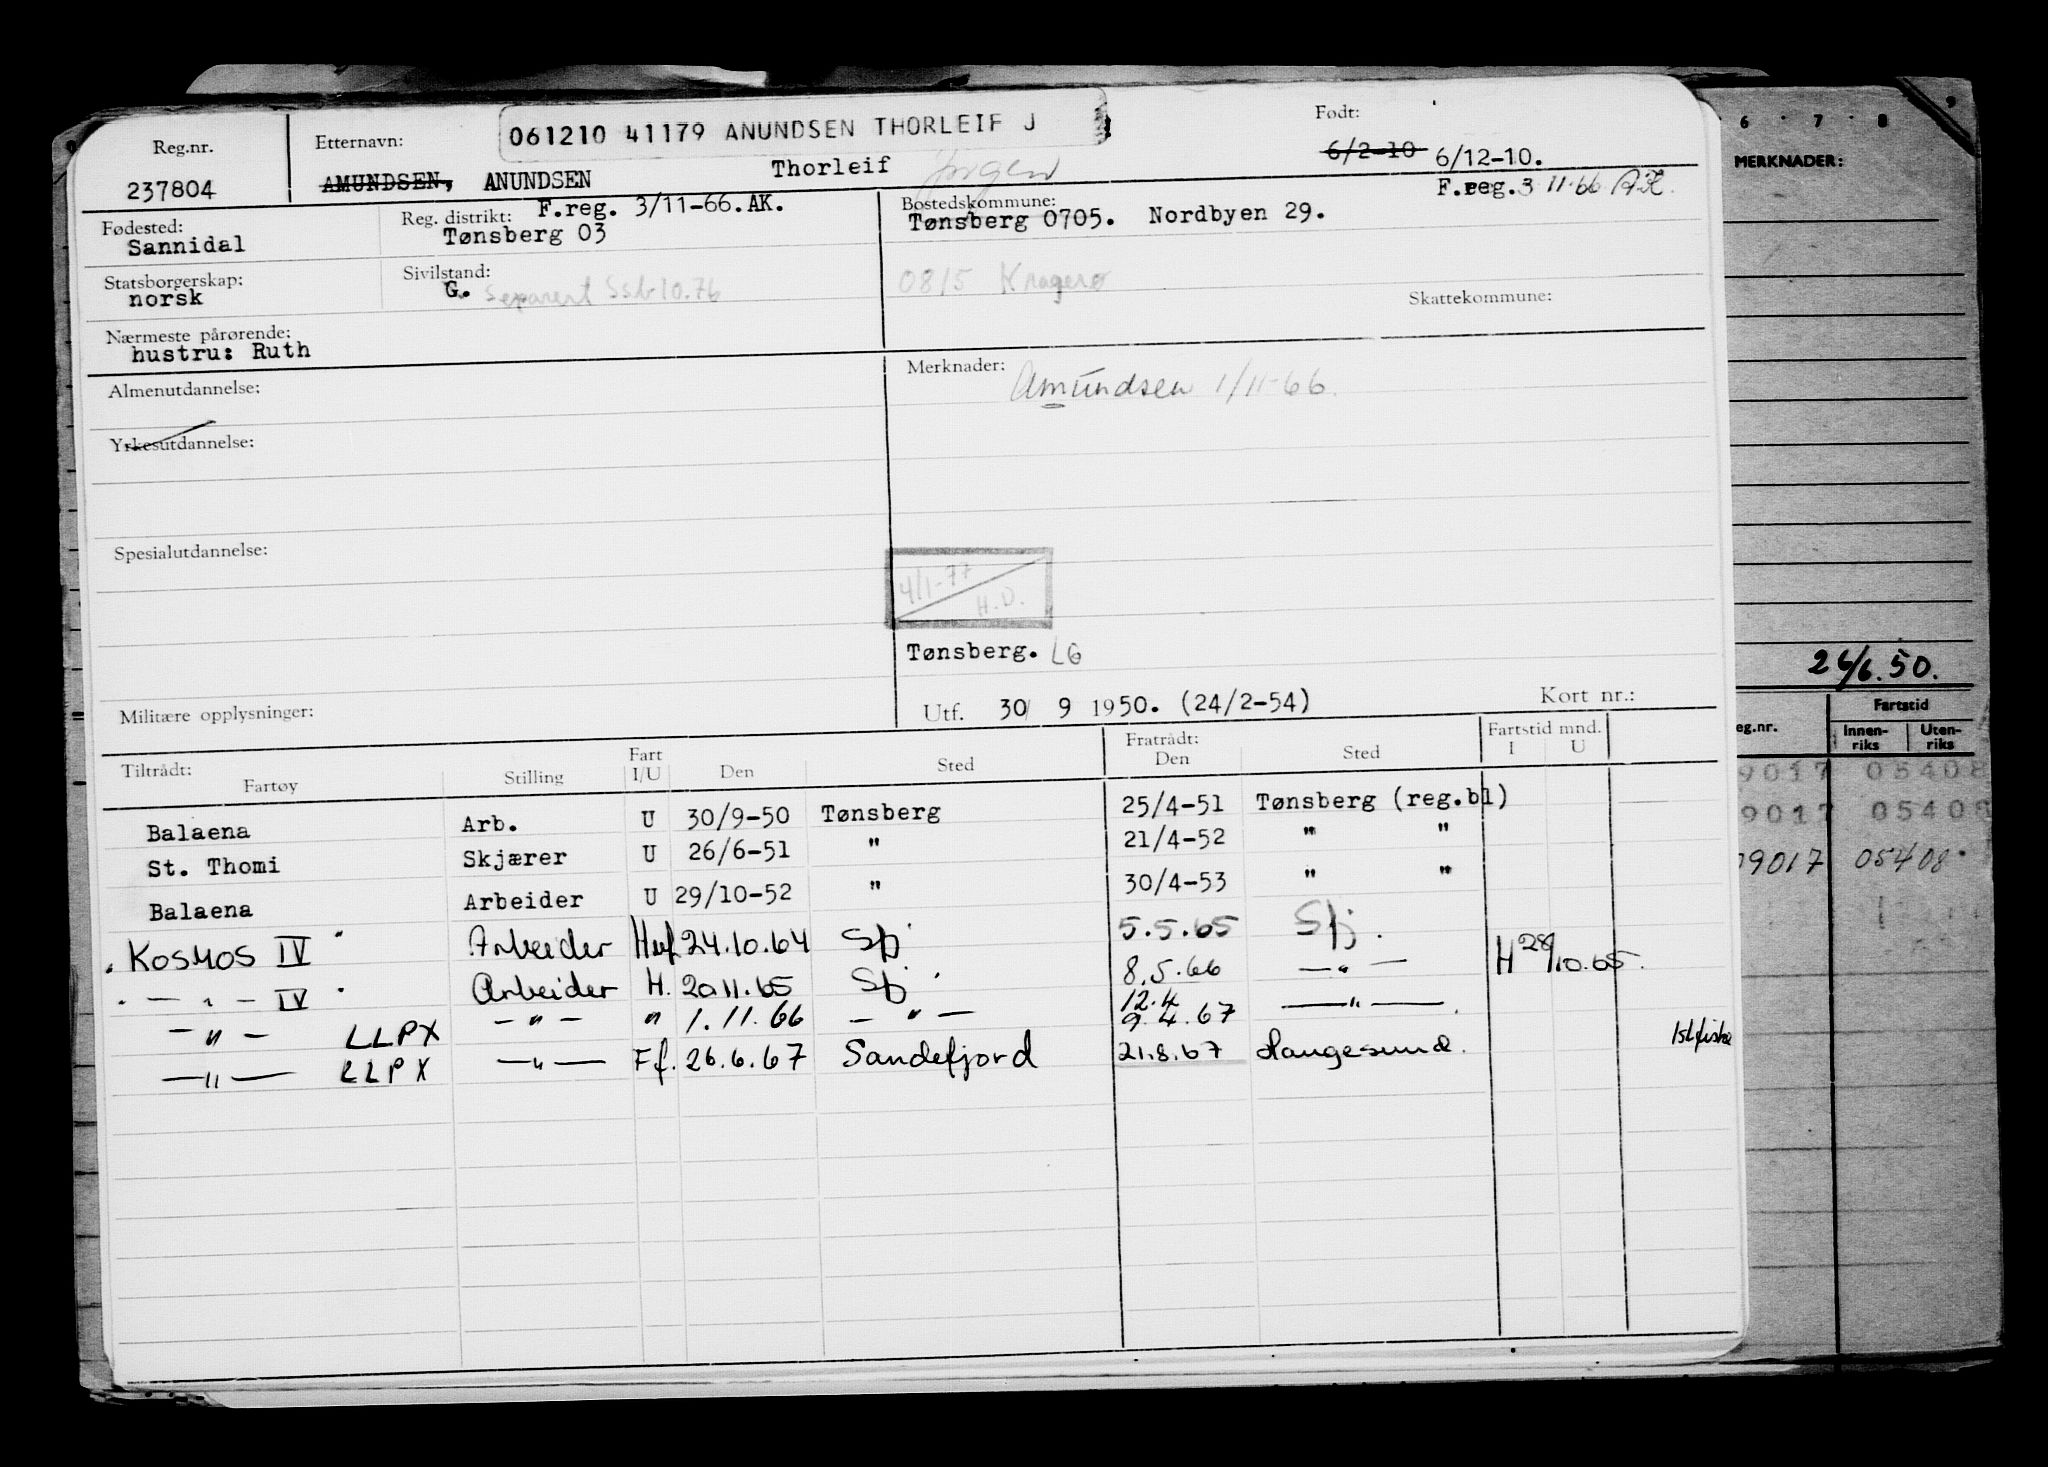 Reg.nr.
237804
Etternavn:
061210 41179 ANUNDSEN THORLEIF J
AMUNDSEN, ANUNDSEN Thorleif Jørgen
Født:
6/2-10 6/12-10.
F.reg. 3 11.66 AK.
Fødested:
Sannidal
Reg. distrikt: F.reg. 3/11-66.AK.
Tønsberg 03
Bostedskommune:
Tønsberg 0705. Nordbyen 29.
Statsborgerskap:
norsk
Sivilstand:
G. Separert Ssb 10.76
0815 Kragerø
Skattekommune:
Nærmeste pårørende:
hustru: Ruth
Almenutdannelse:
Merknader:
Amundsen 1/11-66.
Yrkesutdannelse:
Spesialutdannelse:
4/1-77
H.D.
Tønsberg. LG
Militære opplysninger:
Utf. 30/ 9 1950. (24/2-54)
Kort nr.:
Tiltrådt:
Fartøy Stilling Fart I/U Den Sted Fratrådt: Den Sted Fartstid mnd. I U
Balaena Arb. U 30/9-50 Tønsberg 25/4-51 Tønsberg (reg.bl)
St. Thomi Skjærer U 26/6-51 " 21/4-52 " "
Balaena Arbeider U 29/10-52 " 30/4-53 " "
KOSMOS IV Arbeider Hvf 24.10.64 Sfj 5.5.65 Sfj.
— " — IV Arbeider H. 20.11.65 Sfj 8.5.66 — " — H 28/10.65.
— " — LLPX — " — " 1.11.66 — " — 12.4 9.4.67 — " —
— " — LLPX — " — Ff. 26.6.67 Sandefjord 21.8.67 Haugesund. Islfiske
6 · 7 · 8 9
MERKNADER:
26/6.50.
eg.nr.
Fartstid
Innen-riks Uten-riks
9017 05408
9017 05408
9017 05408